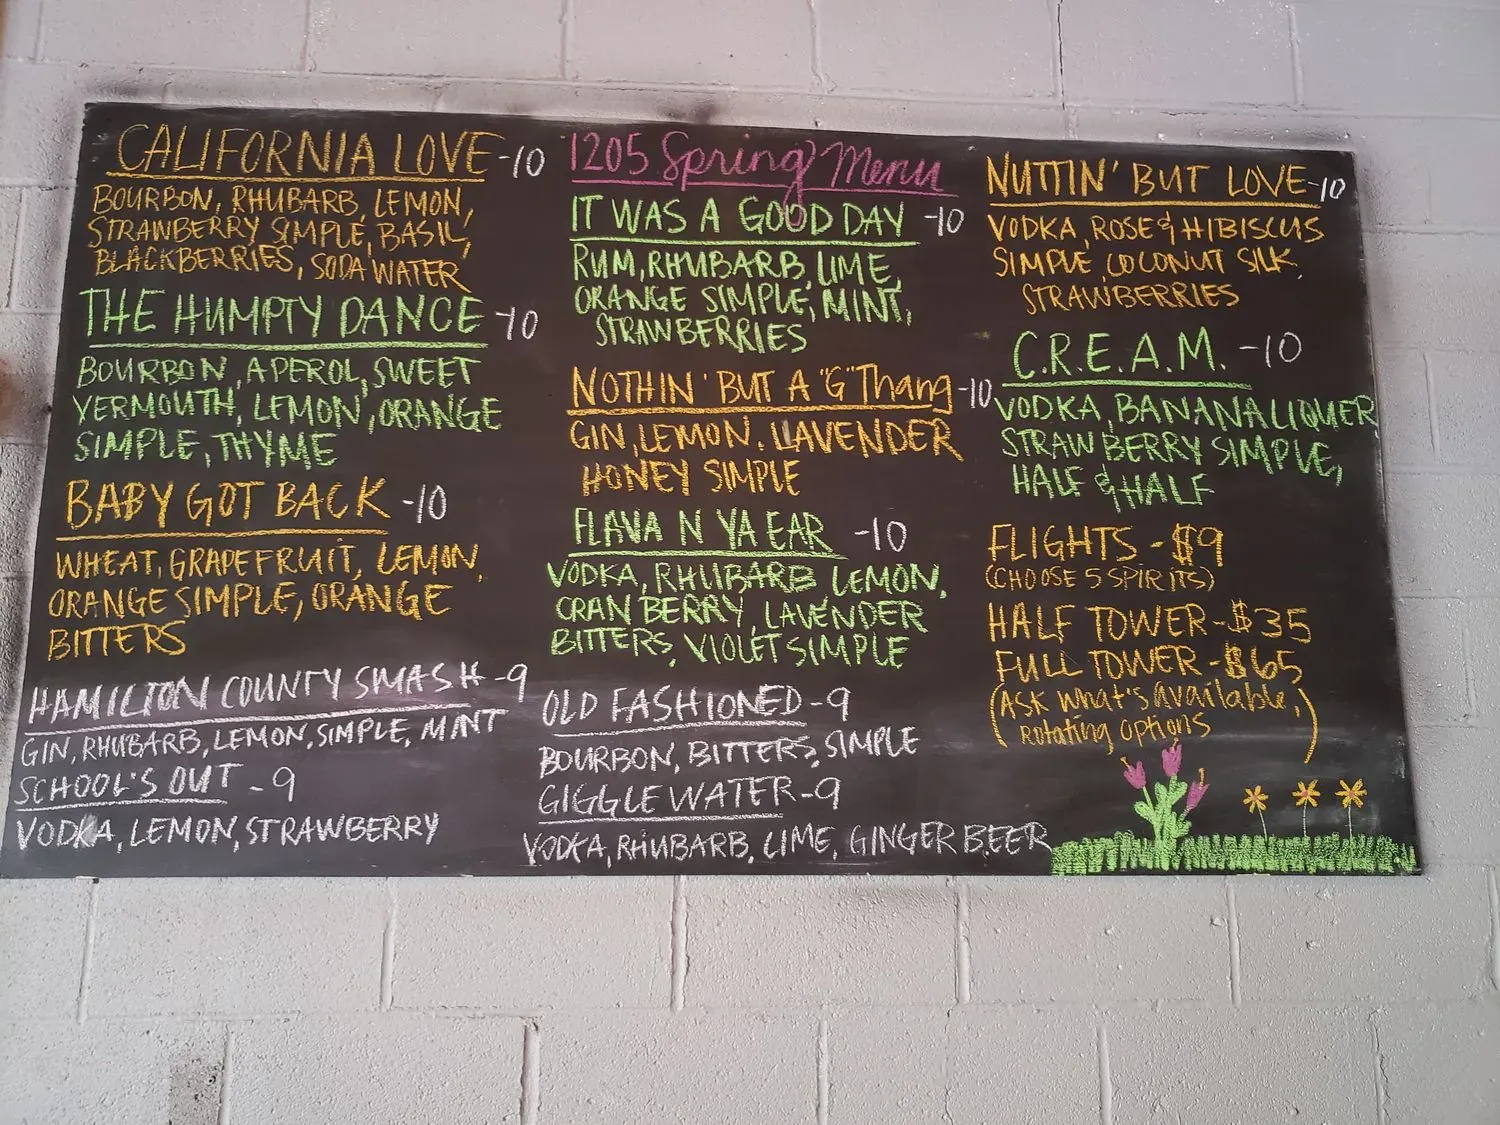 CALIFORNIA LOVE -10
BOURBON, RHUBARB, LEMON,
STRAWBERRY SIMPLE, BASIL,
BLACKBERRIES, SODA WATER
THE HUMPTY DANCE -10
BOURBON, APEROL, SWEET
VERMOUTH, LEMON, ORANGE
SIMPLE, THYME
BABY GOT BACK -10
WHEAT, GRAPEFRUIT, LEMON,
ORANGE SIMPLE, ORANGE
BITTERS
HAMILTON COUNTY SMASH -9
GIN, RHUBARB, LEMON, SIMPLE, MINT
SCHOOL'S OUT -9
VODKA, LEMON, STRAWBERRY
1205 Spring Menu
IT WAS A GOOD DAY -10
RUM, RHUBARB, LIME,
ORANGE SIMPLE, MINT,
STRAWBERRIES
NOTHIN' BUT A "G" Thang -10
GIN, LEMON, LAVENDER
HONEY SIMPLE
FLAVA N YA EAR -10
VODKA, RHUBARB LEMON,
CRANBERRY, LAVENDER
BITTERS, VIOLET SIMPLE
OLD FASHIONED -9
BOURBON, BITTERS, SIMPLE
GIGGLE WATER -9
VODKA, RHUBARB, LIME, GINGER BEER
NUTTIN' BUT LOVE -10
VODKA, ROSE & HIBISCUS
SIMPLE, COCONUT SILK,
STRAWBERRIES
C.R.E.A.M. -10
VODKA, BANANA LIQUER
STRAWBERRY SIMPLE,
HALF & HALF
FLIGHTS - $9
(CHOOSE 5 SPIRITS)
HALF TOWER - $35
FULL TOWER - $65
(Ask what's available,
rotating options)